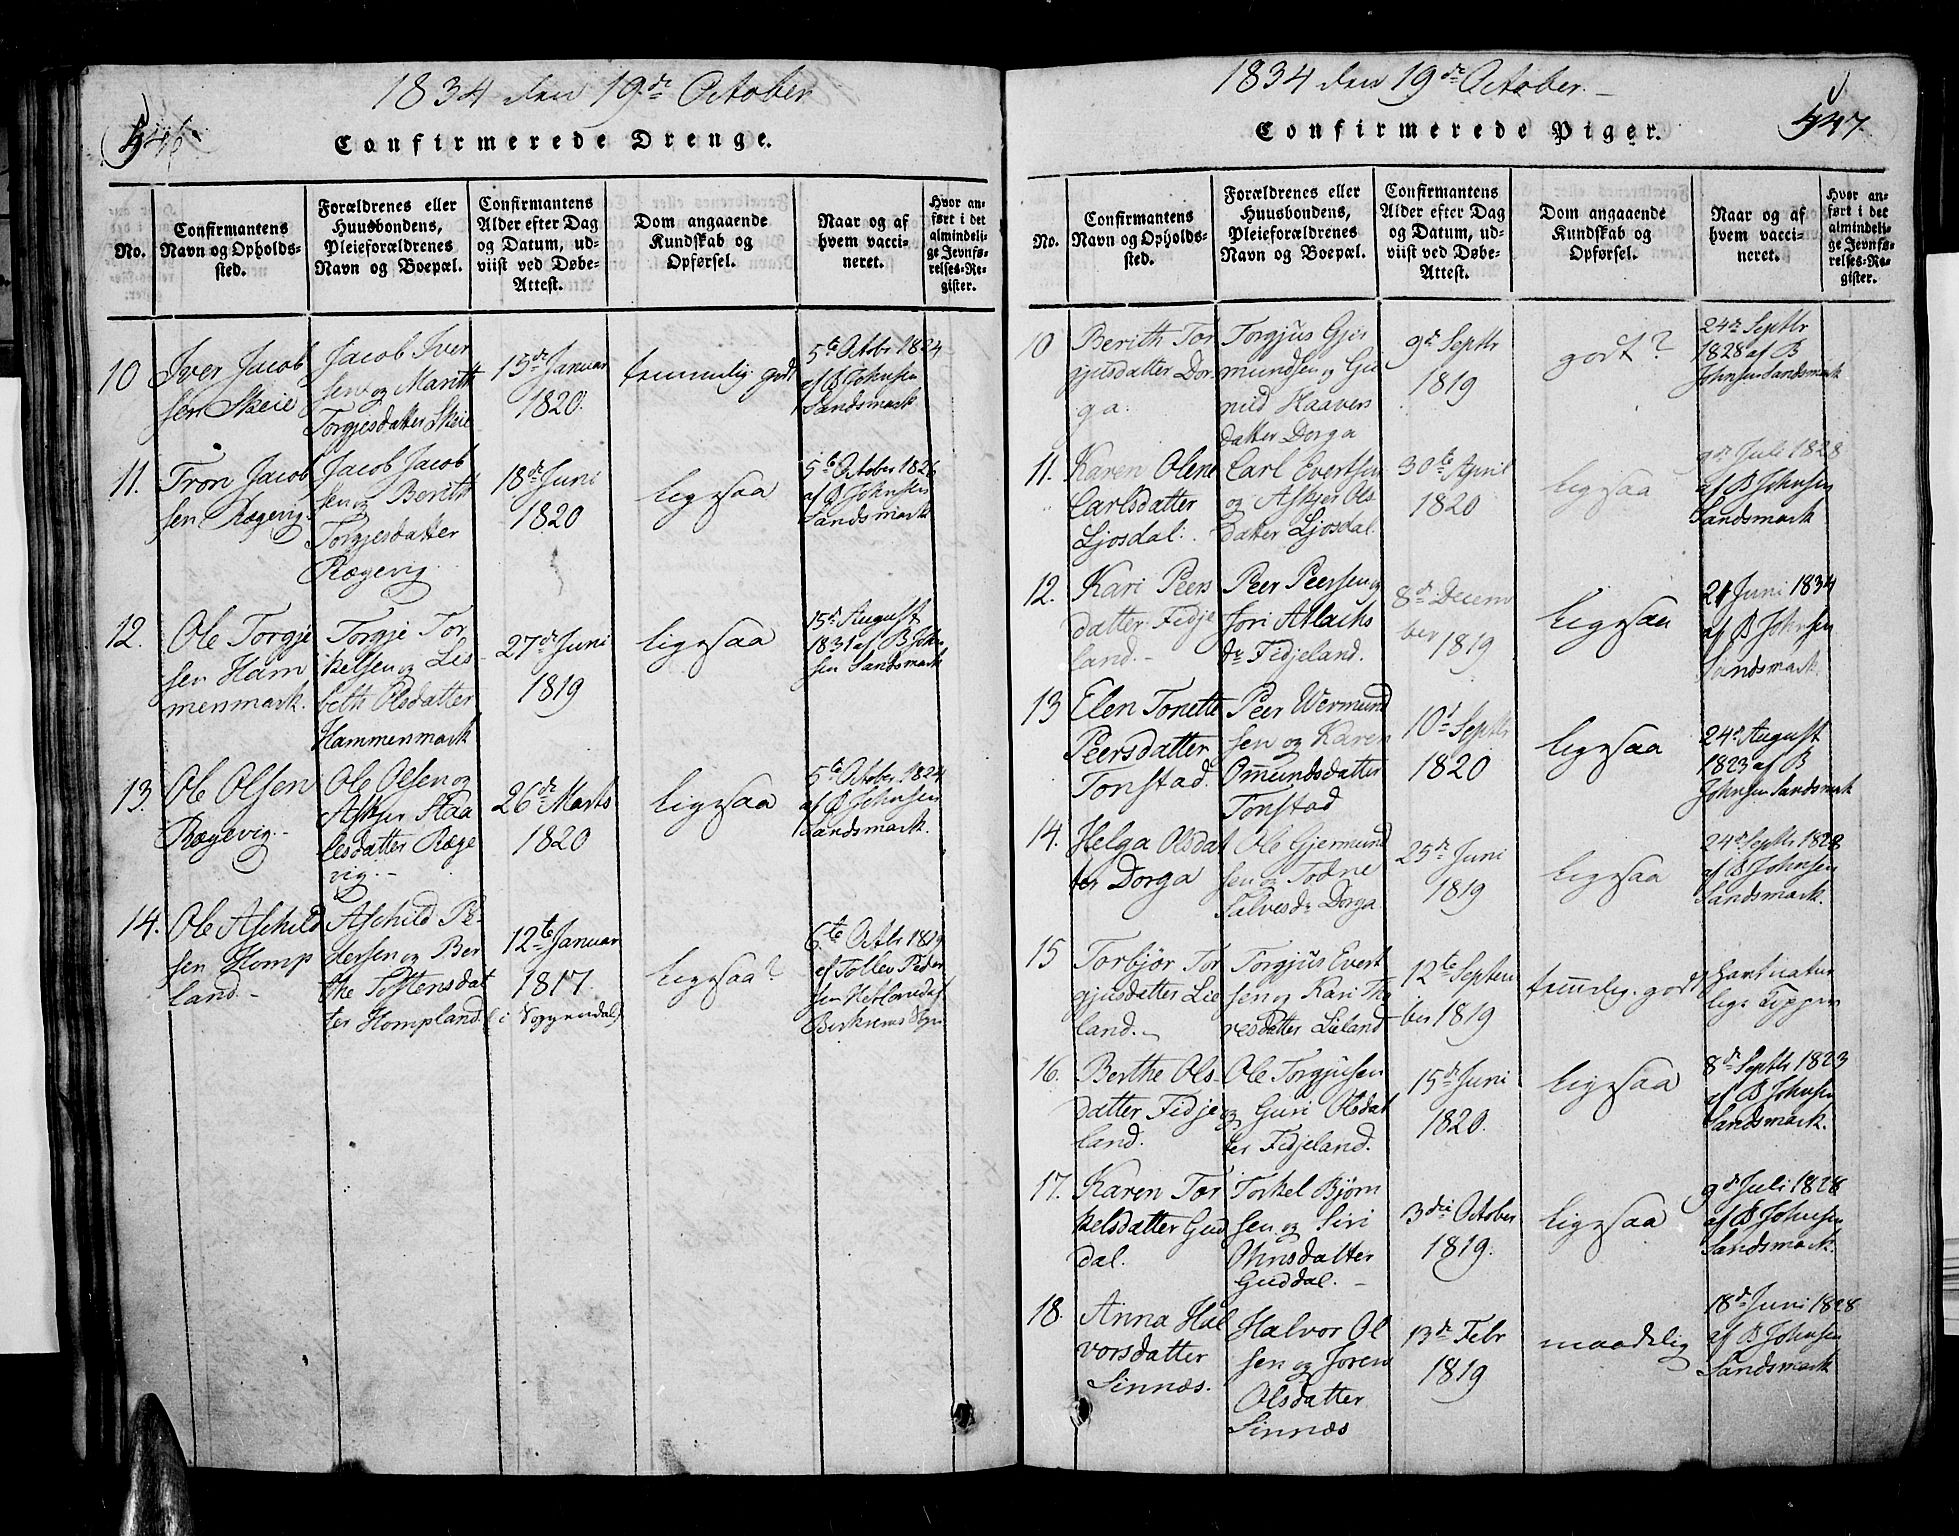 1834 den 19de October
446
Confirmerede Drenge.
No.
Confirmantens
Navn og Opholds-
sted.
Forældrenes eller
Huusbondens,
Pleieforældrenes
Navn og Boepæl.
Confirmantens
Alder efter Dag
og Datum, ud-
viist ved Døbe-
Attest.
Dom angaaende
Kundskab og
Opførsel.
Naar og af
hvem vacci-
neret.
Hvor an-
ført i det
almindeli-
ge Jevnfø-
relses-Re-
gister.
10
Iver Jacob
sen Skeie
Jacob Iver
sen og Marith
Torgjesdatter Skeie
15de Januar
1820.
temmelig godt
5te Octbr 1824
af B Johnsen
Sandsmark
11.
Tron Jacob
sen Rægevig
Jacob Jacob
sen og Berith
Torgjesdatter
Rægevig.
18de Juni
1820
ligesaa
5te October 1826
af B Johnsen
Sandsmark
12.
Ole Torgje
sen Ham
mensmark.
Torgje Tor
kelsen og Lis
beth Olsdatter
Hammensmark
27de Juni
1819
ligesaa
15de August
1831 af B John
sen Sandsmark
13.
Ole Olsen
Rægevig.-
Ole Olsen og
Askjer Staa
lesdatter Ræge
vig.-
26de Marts
1820
ligesaa
5te October 1824
af B Johnsen
Sandsmark.
14.
Ole Aschild
sen Homp
land.-
Aschild Pe-
dersen og Ber
the Tostensdat
ter Hompland
12te Januar
1817.
(i Soggendal)
ligesaa?
6te Octbr 1819
af Tollev Peder
sen
1834 den 19de October.-
447
Confirmerede Piger.
No.
Confirmantens
Navn og Opholds-
sted.
Forældrenes eller
Huusbondens,
Pleieforældrenes
Navn og Boepæl.
Confirmantens
Alder efter Dag
og Datum, ud-
viist ved Døbe-
Attest.
Dom angaaende
Kundskab og
Opførsel.
Naar og af
hvem vacci-
neret.
Hvor an-
ført i det
almindeli-
ge Jevnfø-
relses-Re-
gister.
10
Berith Tor
gjusdatter Dor
ga.
Torgjus Gjer
mundsen og Gu
nild Haavers
datter Dorga
9de Septbr
1819
godt?
24de Septbr
1828 af B
Johnsen Sandsmark
11.
Karen Olene
Carlsdatter
Ljosdal.
Carl Evertsen
og Askjer Ols
datter Ljosdal
30te April
1820
ligesaa
9de Juli 1828
af B Johnsen
Sandsmark
12.
Kari Peers
datter Fidje
land.-
Peer Peersen og
Jori Atlaks
dr Fidjeland.
8de Decem
ber 1819
ligesaa
21 Juni 1834
af B Johnsen
Sandsmark
13
Elen Tonette
Peersdatter
Tonstad.
Peer Wermund
sen og Karen
Omundsdatter
Tonstad
10de Septbr
1820
ligesaa
24de August
1823 af B
Johnsen Sandsmark
14.
Helga Olsdat
ter Dorga
Ole Gjermund
sen og Todne
Salvesdr Dorga
25de Juni
1819
ligesaa
24de Septbr 1828
af B Johnsen
Sandsmark.
15
Torbjør Tor
gjusdatter Lie
land.-
Torgjus Evert
sen og Kari To
resdatter Lieland
12te Septem
ber 1819
temlig godt
havt natur
lige Kopper
16.
Berthe Ols-
datter Fidje
land.
Ole Torgjusen
og Guri Olsdat
ter Fidjeland.
15de Juni
1820.
ligesaa
8de Septbr 1823
af B Johnsen
Sandsmark.
17.
Karen Tor
kelsdatter Gud
dal.
Torkel Bjørn
sen og Siri
Ohnsdatter
Guddal.-
3die October
1819.
ligesaa
9de Juli 1828
af B Johnsen
Sandsmark.
18.
Anna Hal
vorsdatter
Sinnæs.
Halvor Ol
sen og Joren
Olsdatter
Sinnæs
13de Febr
1819
maadelig
18de Juni 1828
af B Johnsen
Sandsmark